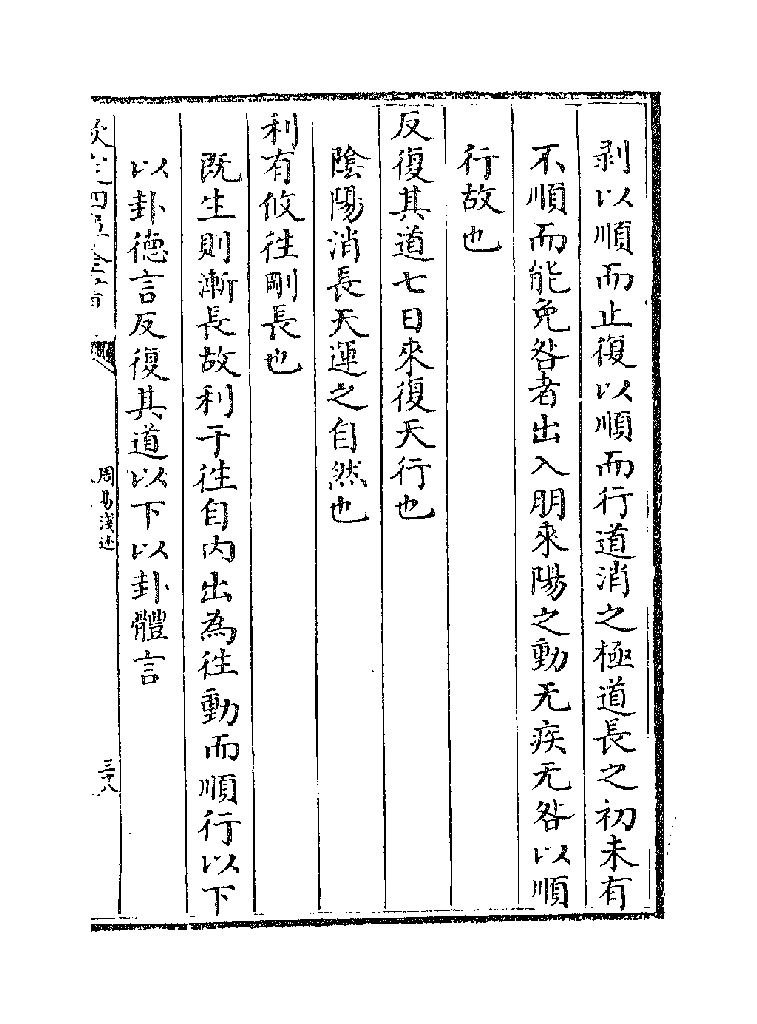 剥以順而止復以順而行道消之極道長之初未有
不順而能免咎者出入朋來陽之動无疾无咎以順
行故也
反復其道七日來復天行也
陰陽消長天運之自然也
利有攸往剛長也
既生則漸長故利于往自内出為往動而順行以下
以卦德言反復其道以下以卦體言
周易淺述
三十八